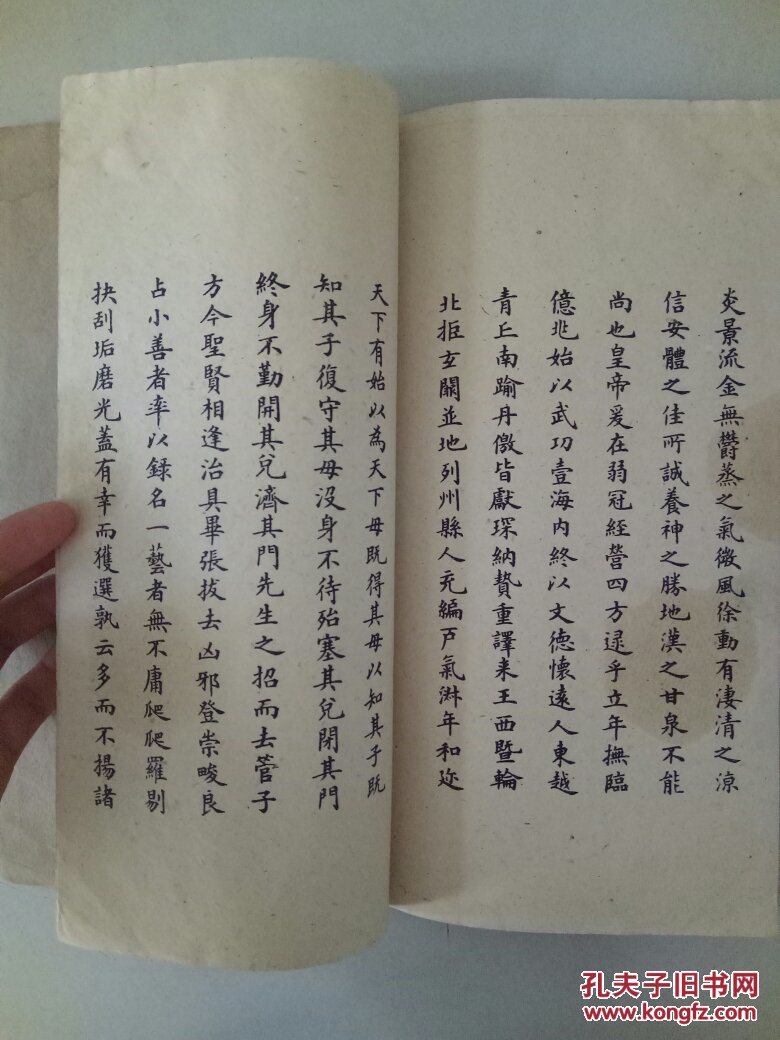 炎景流金無欝蒸之氣微風徐動有淒清之涼
信安體之佳所誠養神之勝地漢之甘泉不能
尚也皇帝爰在弱冠經營四方逯乎立年撫臨
億兆始以武功壹海內終以文德懷遠人東越
青丘南踰丹儌皆獻琛納贄重譯来王西暨輪
北拒玄闕並地列州縣人充編戸氣淋年和迩
天下有始以為天下母既得其母以知其子既
知其子復守其母没身不待殆塞其兌閉其門
終身不勤開其兌濟其門先生之招而去管子
方今聖賢相逢治具畢張拔去凶邪登崇畯良
占小善者率以錄名一藝者無不庸爬爬羅剔
抉刮垢磨光蓋有幸而獲選孰云多而不揚諸
孔夫子旧书网
www.kongfz.com